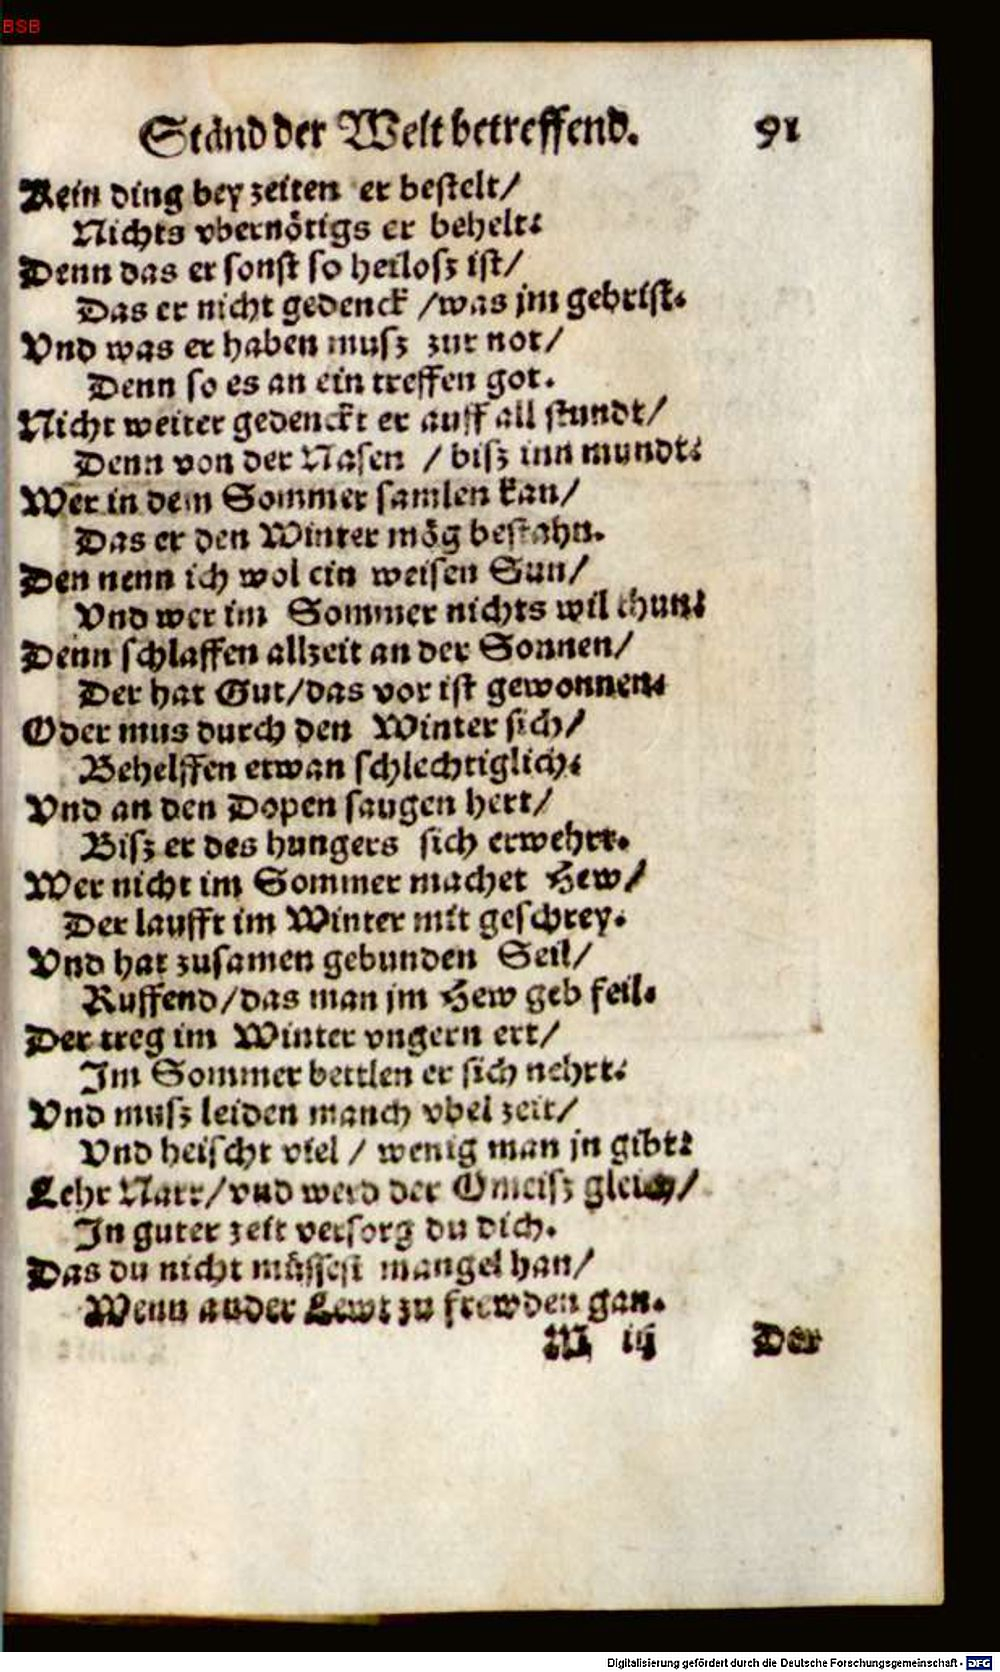 BSB
Ständ der Welt betreffend. 91
Kein ding bey zeiten er bestelt/
Nichts vbernötigs er behelt:
Denn das er sonst so heilosz ist/
Das er nicht gedenck /was jm gebrist.
Vnd was er haben musz zur not/
Denn so es an ein treffen got.
Nicht weiter gedenckt er auff all stundt/
Denn von der Nasen / bisz inn mundt:
Wer in dem Sommer samlen kan/
Das er den Winter mög bestahn.
Den nenn ich wol ein weisen Sun/
Vnd wer im Sommer nichts wil thun:
Denn schlaffen allzeit an der Sonnen/
Der hat Gut/das vor ist gewonnen:
Oder mus durch den Winter sich/
Behelffen etwan schlechtiglich:
Vnd an den Dopen saugen hert/
Bisz er des hungers sich erwehrt.
Wer nicht im Sommer machet Hew/
Der laufft im Winter mit geschrey.
Vnd hat zusamen gebunden Seil/
Ruffend/das man jm Hew geb feil.
Der treg im Winter vngern ert/
Im Sommer bettlen er sich nehrt:
Vnd musz leiden manch vbel zeit/
Vnd heischt viel / wenig man jn gibt:
Lehr Narr/vnd werd der Omeisz gleich/
In guter zeit versorg du dich.
Das du nicht müssest mangel han/
Wenn ander Lewt zu frewden gan.
M iij Der
Digitalisierung gefördert durch die Deutsche Forschungsgemeinschaft - DFG